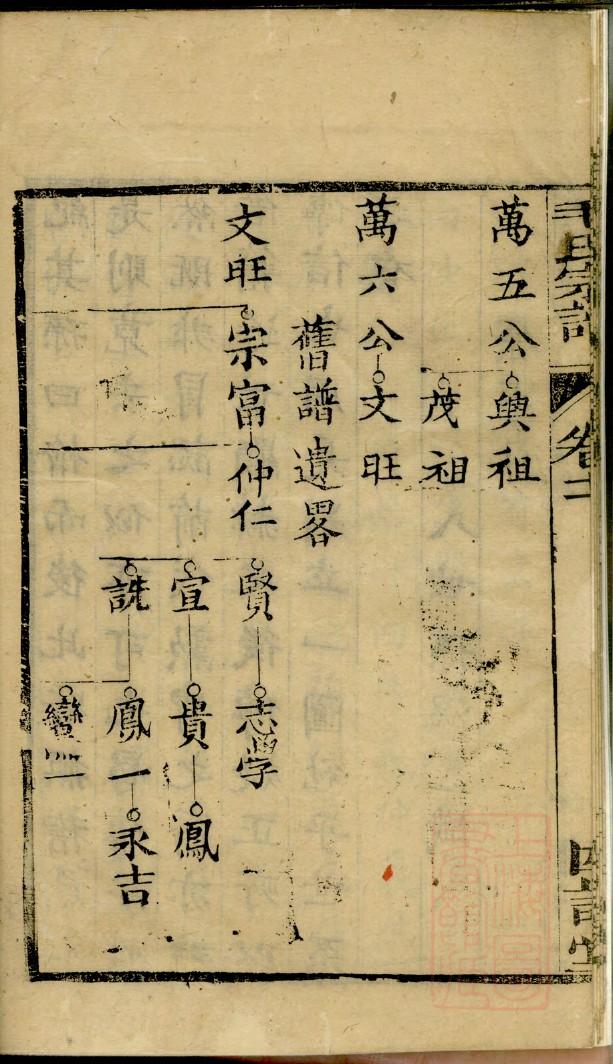 毛氏宗譜
卷二
萬五公 興祖
茂祖
萬六公 文旺
舊譜遺畧
文旺 宗富 仲仁
賢 志學
宣 貴 鳳
詵 鳳一 永吉